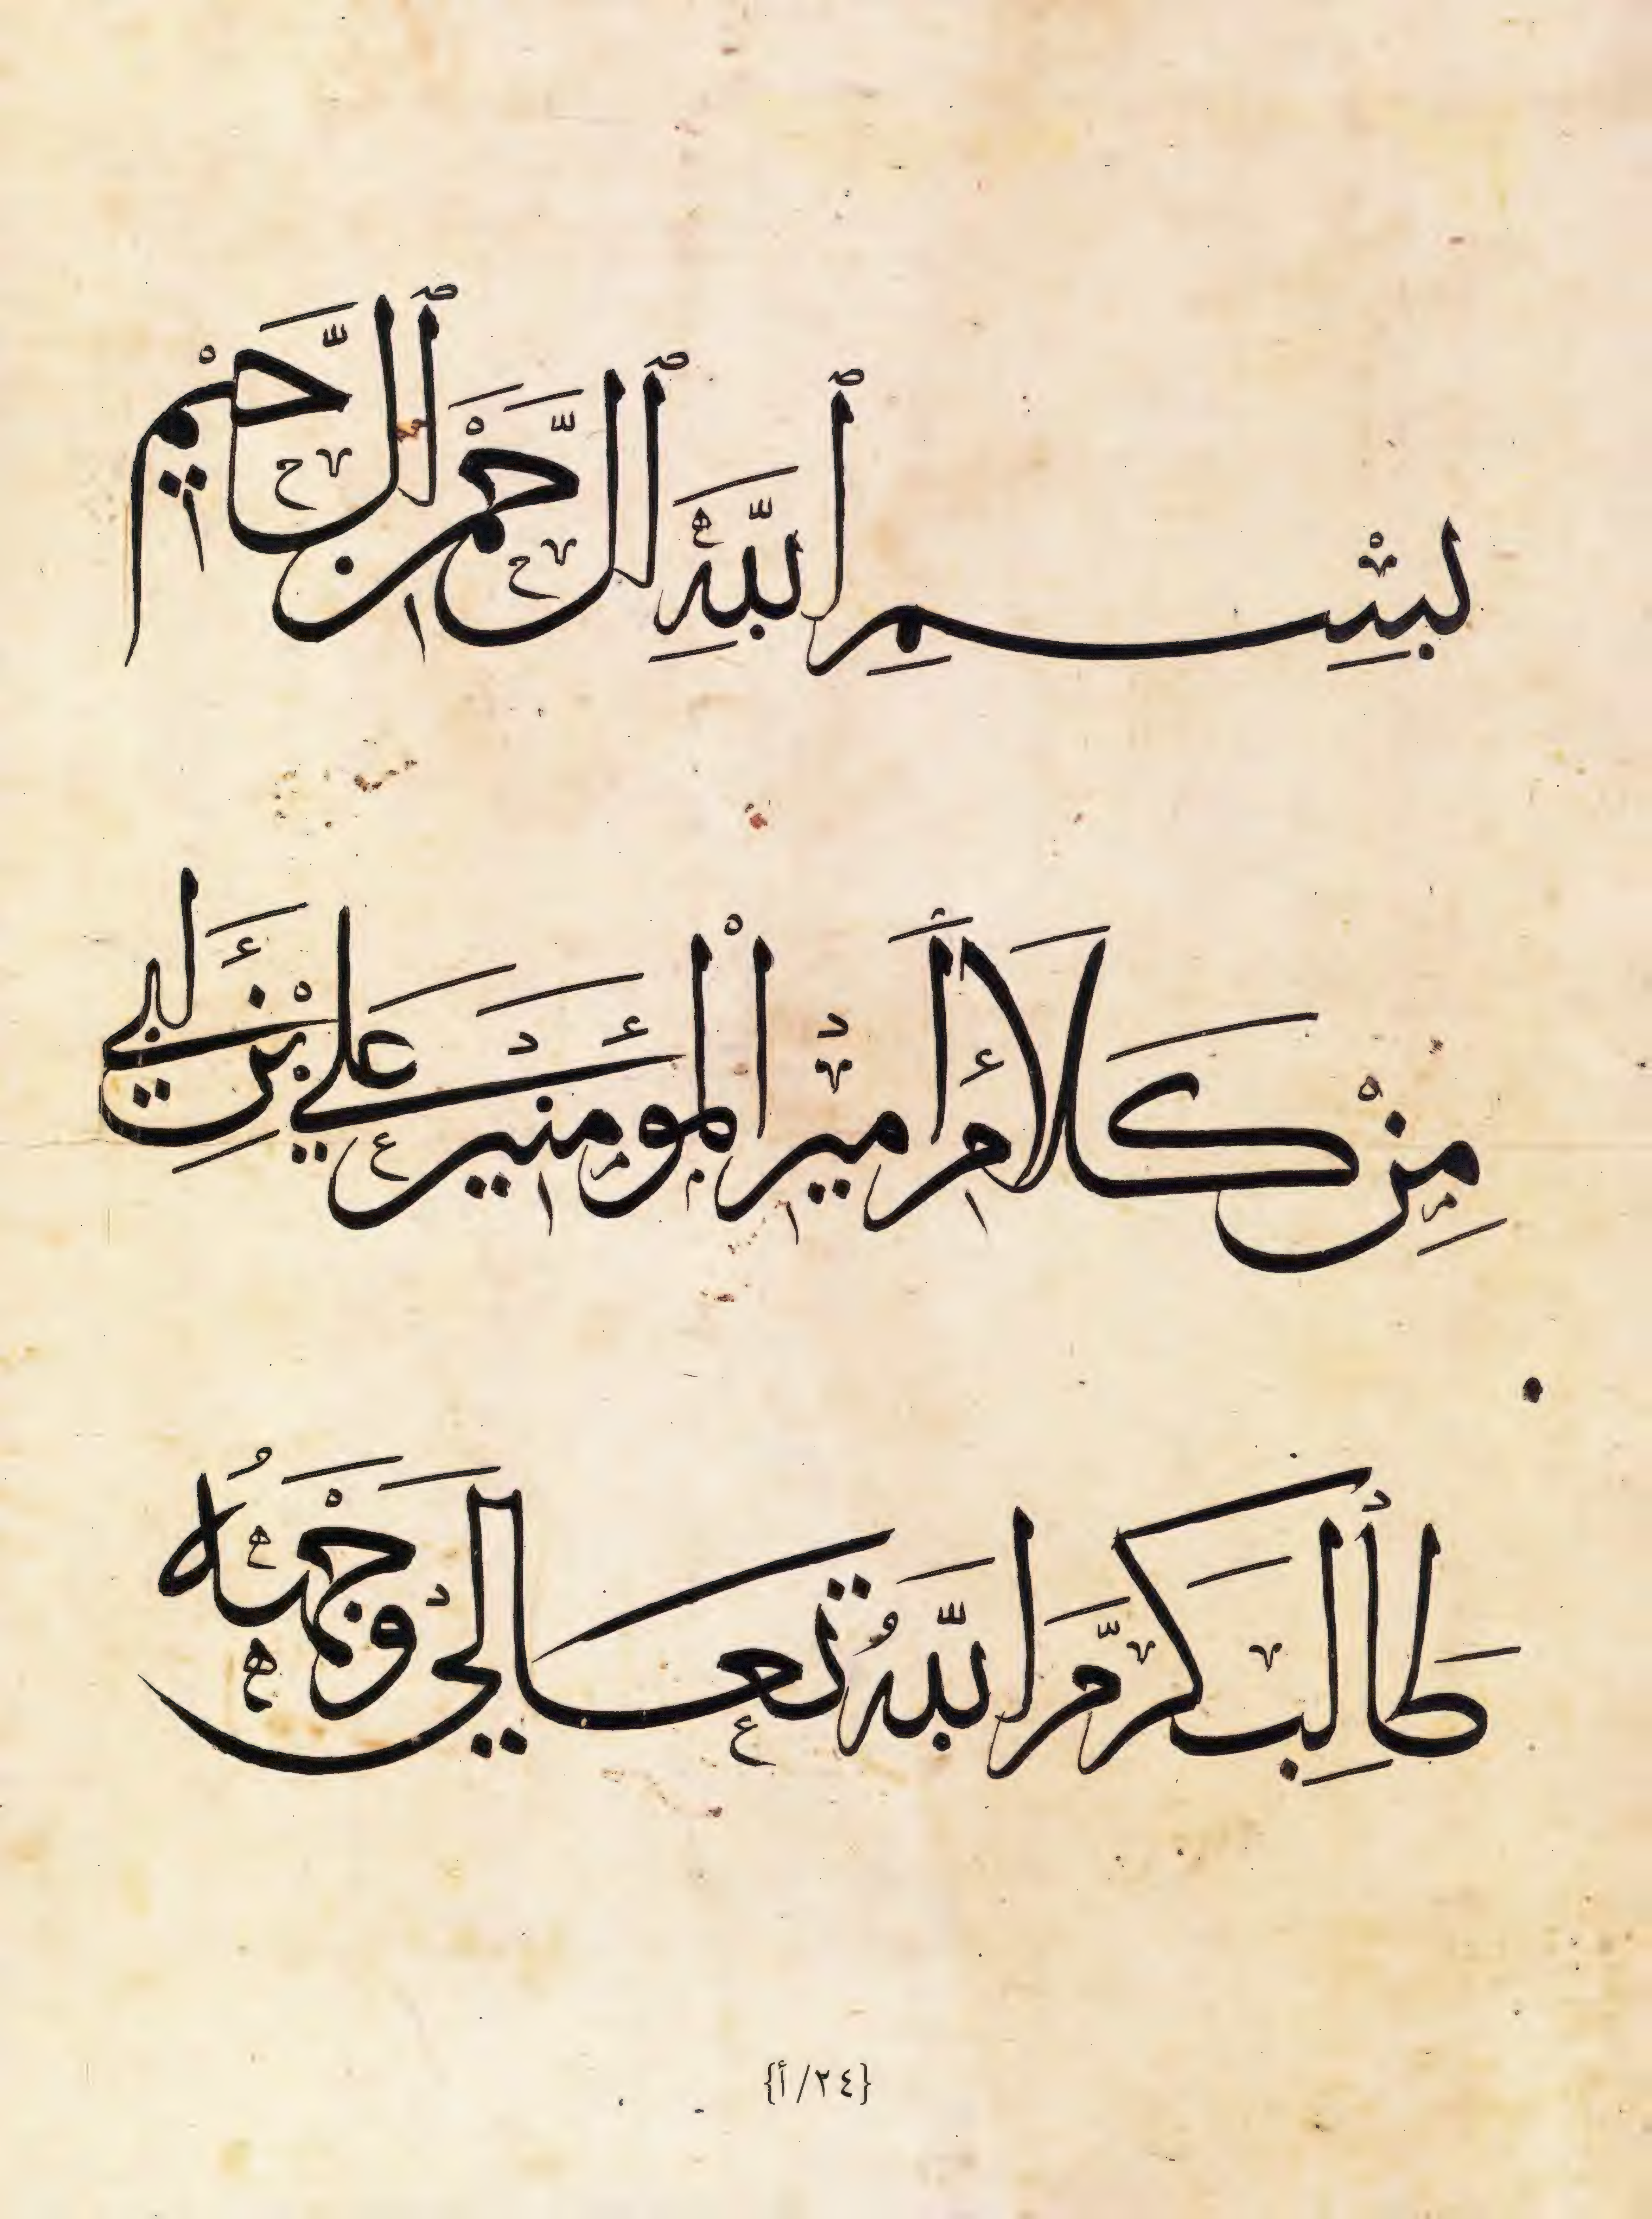 بِسْمِ ٱللَّهِ ٱلرَّحْمَنِ ٱلرَّحِيْمِ
مِنْ كَلَامِ أَمِيرِ الْمُؤمِنِينَ عَلِي بْنِ أَبِي
طَالِبٍ كَرَّمَ اللَّهُ تَعَالَي وَجْهَهُ
{٢٤/أ}